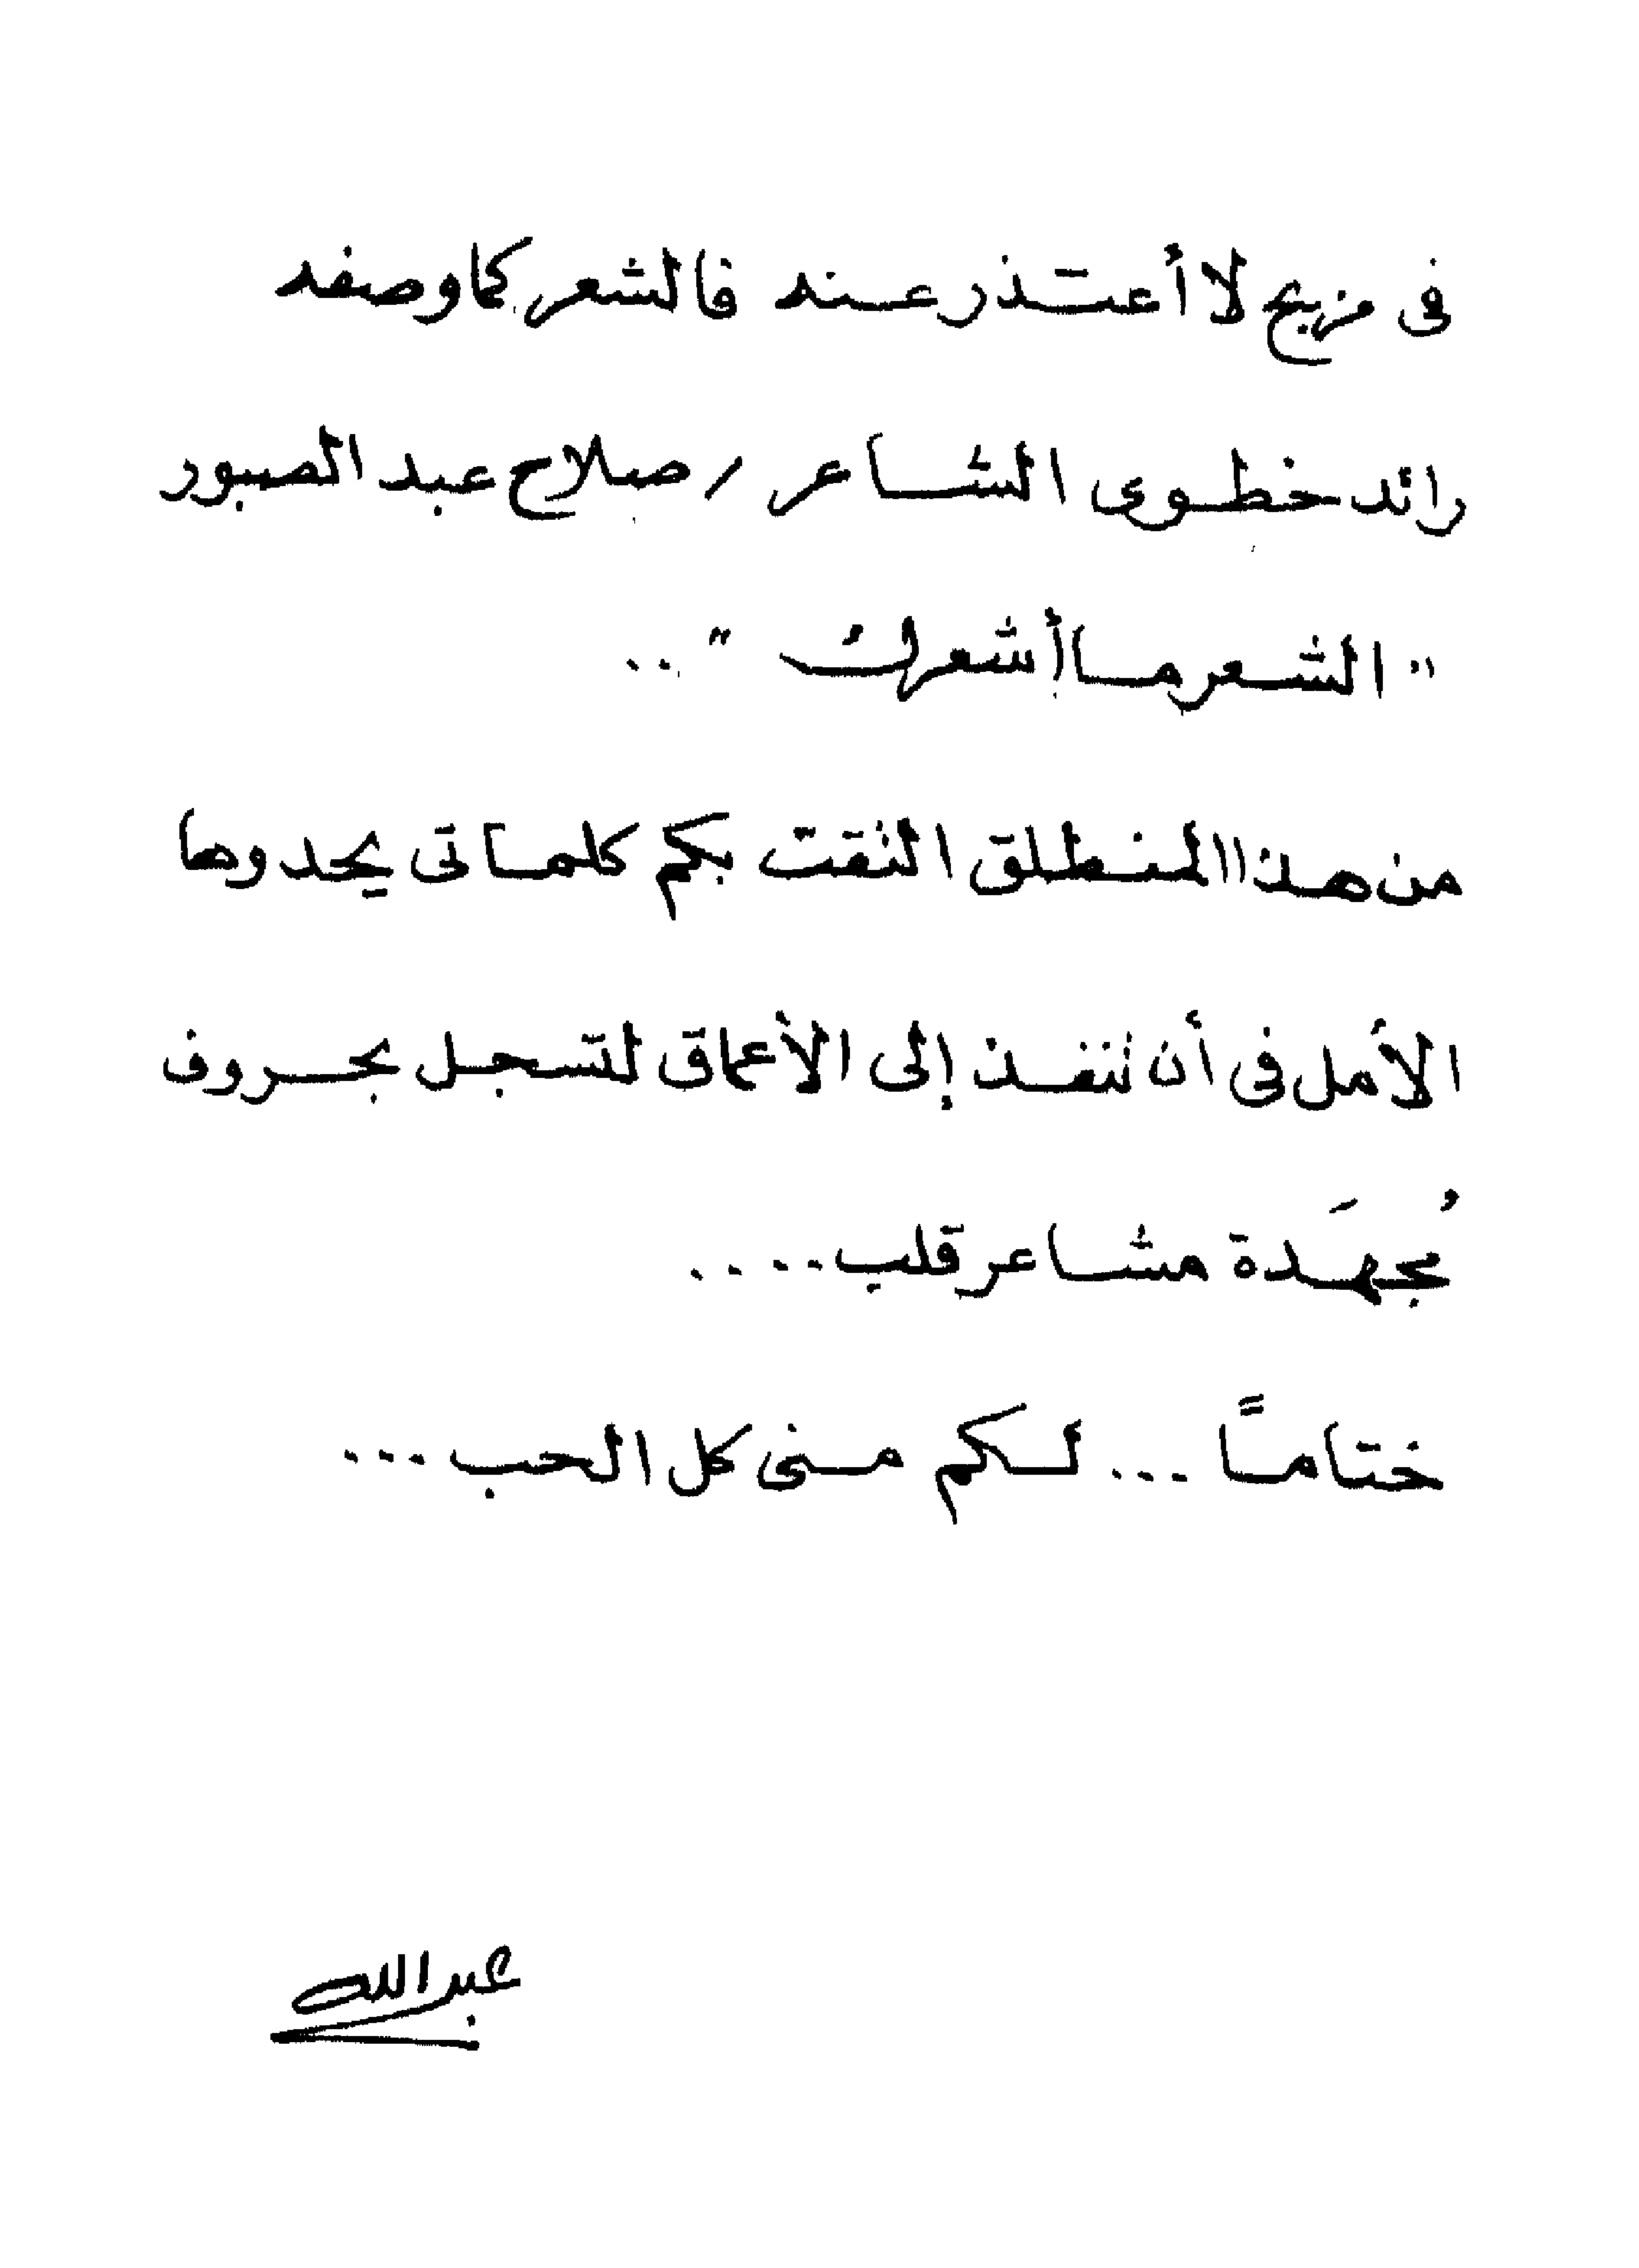 فى مزيج لا أعتذر عنه فالشعر كما وصفه
رائد خطوى الشاعر / صلاح عبد الصبور
" الشعر ما أشعركُ " ..
من هذا المنطلق التقت بكم كلماتى يحدوها
الأمل فى أن تنفذ إلى الأعماق لتسجل بحروف
مُجهَدة مشاعر قلب ....
ختاماً ... لكم منى كل الحب ...
عبدالله